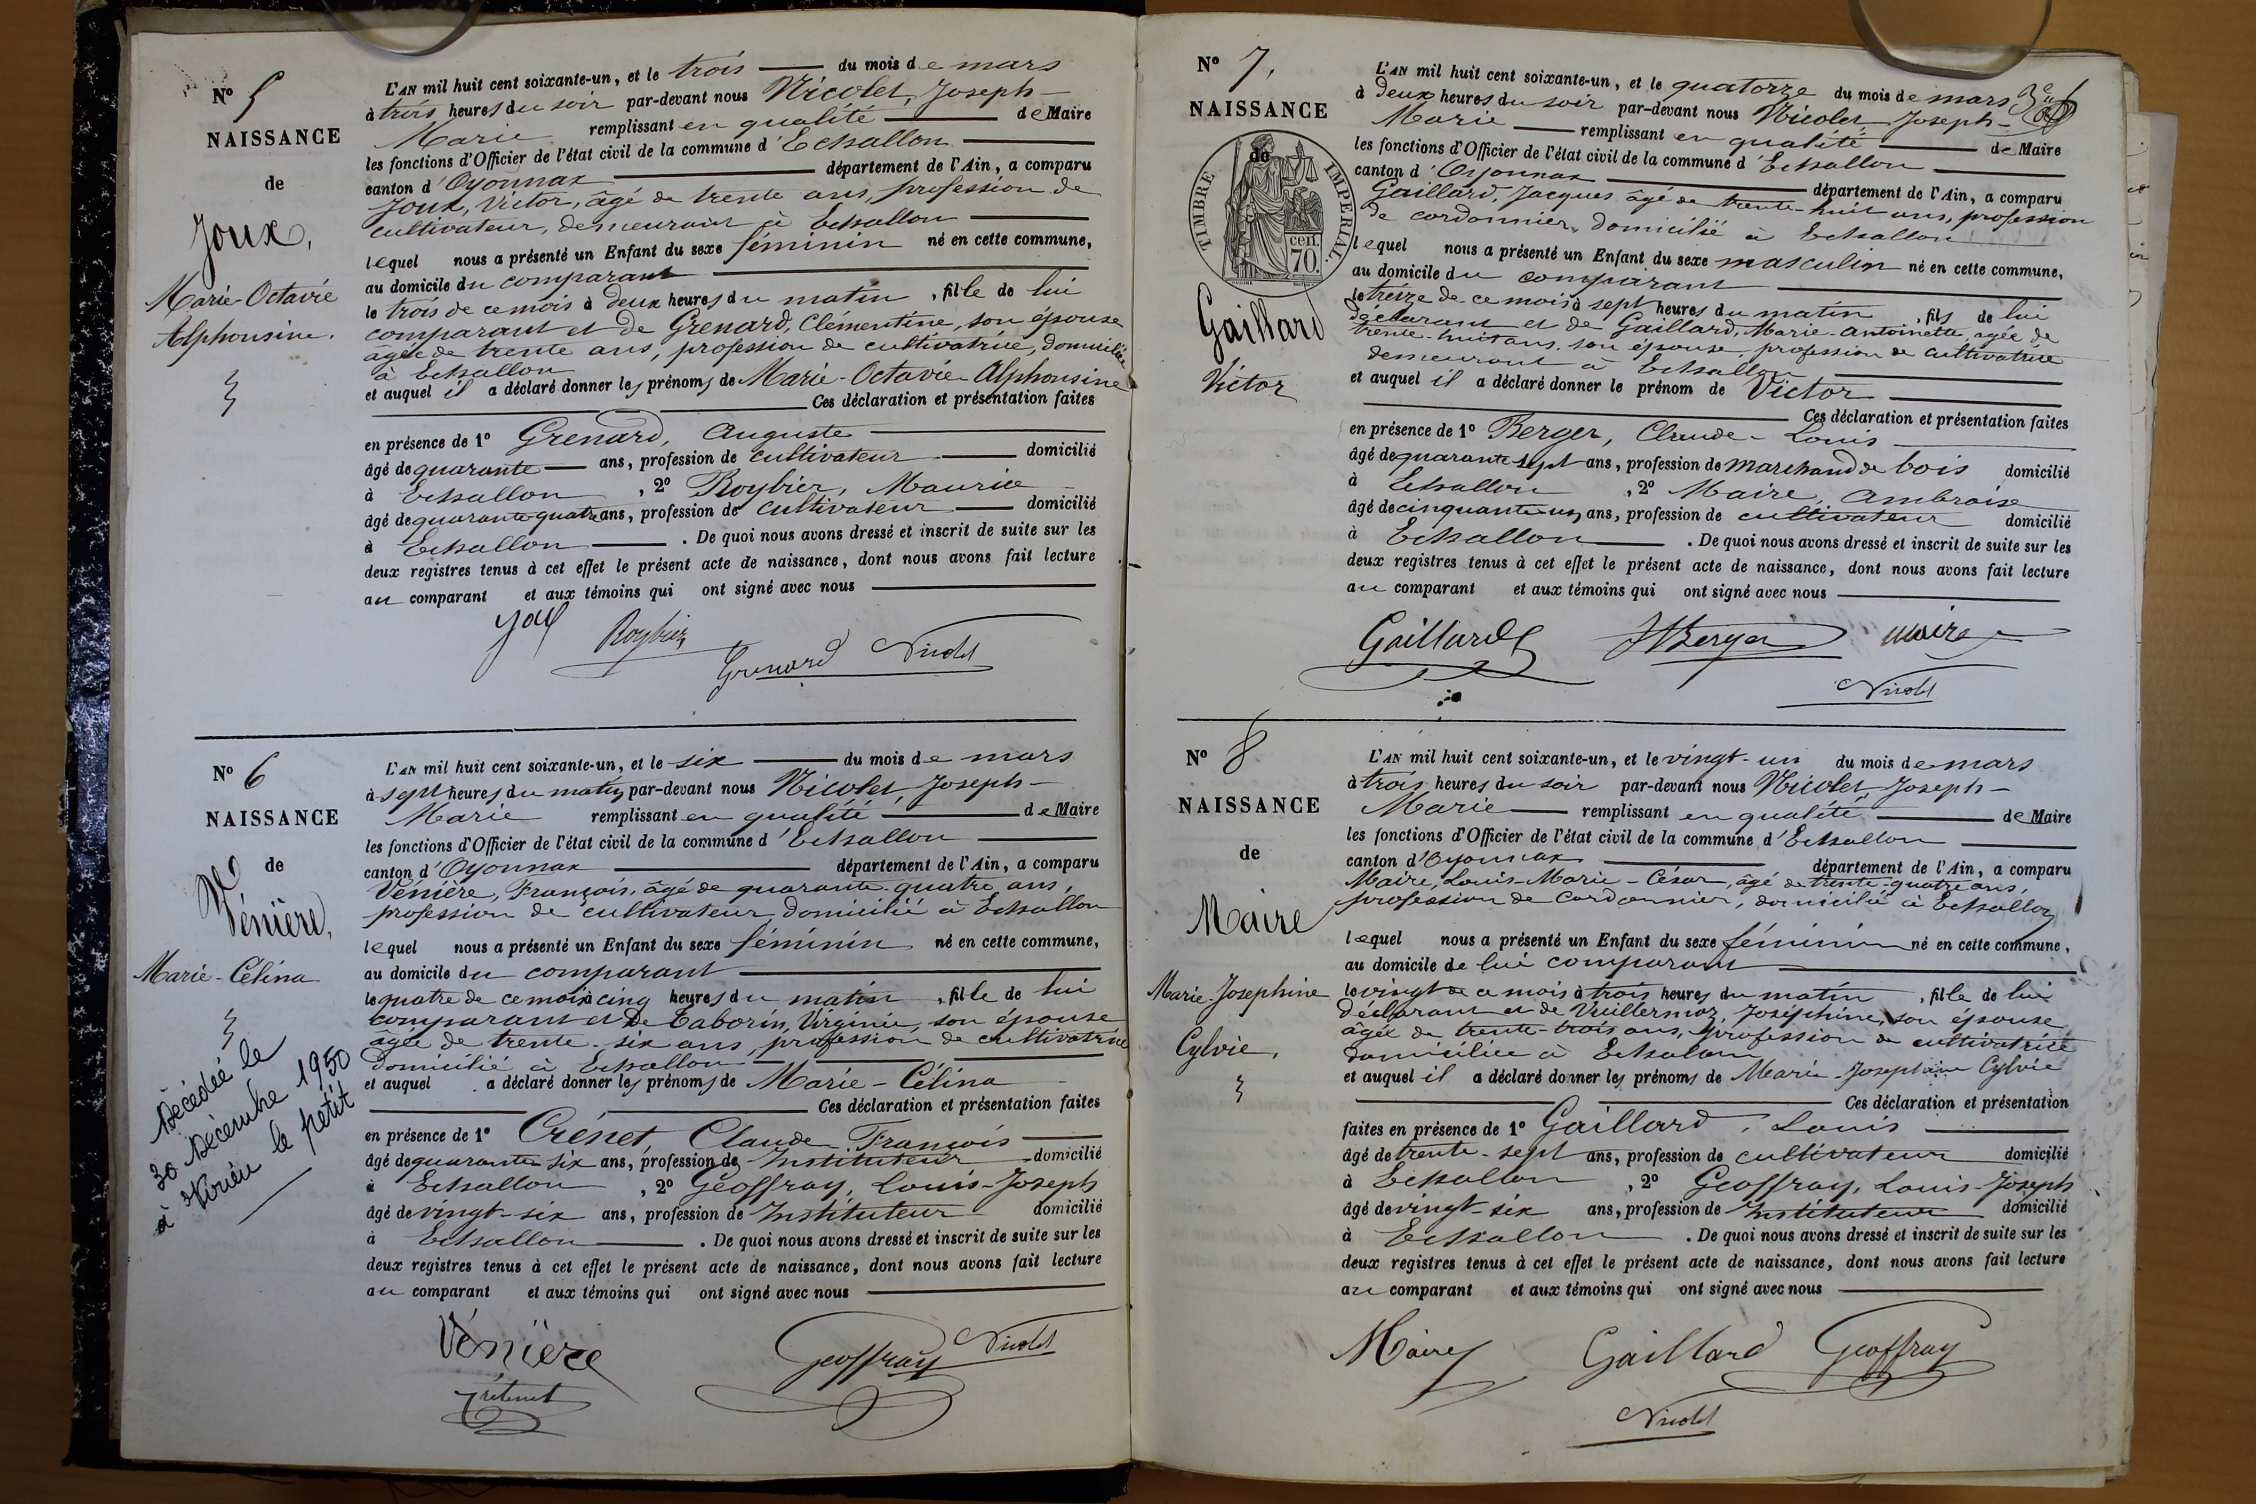 N° 5
NAISSANCE
de
Joux,
Marie-Octavie
Alphonsine.
L'AN mil huit cent soixante-un, et le trois du mois de mars
à trois heures du soir par-devant nous Nicolet, Joseph-
Marie remplissant en qualité de Maire
les fonctions d'Officier de l'état civil de la commune d'Echallon
canton d'Oyonnax département de l'Ain, a comparu
Joux, Victor, âgé de trente ans, profession de
cultivateur, demeurant à Echallon
lequel nous a présenté un Enfant du sexe féminin né en cette commune,
au domicile du comparant
le trois de ce mois à deux heures du matin, fille de lui
comparant et de Grenard, Clémentine, son épouse
agée de trente ans, profession de cultivatrice, domiciliée
à Echallon
et auquel il a déclaré donner les prénoms de Marie-Octavie-Alphonsine
Ces déclaration et présentation faites
en présence de 1° Grenard, Auguste
âgé de quarante ans, profession de cultivateur domicilié
à Echallon, 2° Roybier, Maurice
âgé de quarante-quatre ans, profession de cultivateur domicilié
à Echallon. De quoi nous avons dressé et inscrit de suite sur les
deux registres tenus à cet effet le présent acte de naissance, dont nous avons fait lecture
au comparant et aux témoins qui ont signé avec nous
Roybier
Grenard Nicolet
N° 6
NAISSANCE
de
Vénière,
Marie-Célina
Décédée le
30 Décembre 1950
à Virieu le petit
L'AN mil huit cent soixante-un, et le six du mois de mars
à sept heures du matin par-devant nous Nicolet, Joseph-
Marie remplissant en qualité de Maire
les fonctions d'Officier de l'état civil de la commune d'Echallon
canton d'Oyonnax département de l'Ain, a comparu
Vénière, François, âgé de quarante-quatre ans,
profession de cultivateur, domicilié à Echallon
lequel nous a présenté un Enfant du sexe féminin né en cette commune,
au domicile du comparant
le quatre de ce mois à cinq heures du matin, fille de lui
comparant et de Taborin, Virginie, son épouse
âgée de trente-six ans, profession de cultivatrice
domicilié à Echallon
et auquel a déclaré donner les prénoms de Marie-Célina
Ces déclaration et présentation faites
en présence de 1° Crénet, Claude-François
âgé de quarante six ans, profession de Instituteur domicilié
à Echallon, 2° Geoffray, Louis-Joseph
âgé de vingt-six ans, profession de Instituteur domicilié
à Echallon. De quoi nous avons dressé et inscrit de suite sur les
deux registres tenus à cet effet le présent acte de naissance, dont nous avons fait lecture
au comparant et aux témoins qui ont signé avec nous
Vénière Geoffray Nicolet
N° 7,
NAISSANCE
de
TIMBRE IMPERIAL.
cen. 70.
Gaillard
Victor
L'AN mil huit cent soixante-un, et le quatorze du mois de mars
à deux heures du soir par-devant nous Nicolet, Joseph-
Marie remplissant en qualité de Maire
les fonctions d'Officier de l'état civil de la commune d'Echallon
canton d'Oyonnax département de l'Ain, a comparu
Gaillard, Jacques âgé de trente-huit ans, profession
de cordonnier, domicilié à Echallon
lequel nous a présenté un Enfant du sexe masculin né en cette commune,
au domicile du comparant
le treize de ce mois à sept heures du matin, fils de lui
déclarant et de Gaillard, Marie-Antoinette, agée de
trente-huit ans, son épouse, profession de cultivatrice
demeurant à Echallon
et auquel il a déclaré donner le prénom de Victor
Ces déclaration et présentation faites
en présence de 1° Berger, Claude-Louis
âgé de quarante-sept ans, profession de marchand de bois domicilié
à Echallon, 2° Maire, Ambroise
âgé de cinquante-un ans, profession de cultivateur domicilié
à Echallon. De quoi nous avons dressé et inscrit de suite sur les
deux registres tenus à cet effet le présent acte de naissance, dont nous avons fait lecture
au comparant et aux témoins qui ont signé avec nous
Gaillard Berger maire
Nicolet
N° 8
NAISSANCE
de
Maire
Marie-Josephine
Cylvie,
L'AN mil huit cent soixante-un, et le vingt-un du mois de mars
à trois heures du soir par-devant nous Nicolet, Joseph-
Marie remplissant en qualité de Maire
les fonctions d'Officier de l'état civil de la commune d'Echallon
canton d'Oyonnax département de l'Ain, a comparu
Maire, Louis-Marie-César, âgé de trente-quatre ans,
profession de cordonnier, domicilié à Echallon
lequel nous a présenté un Enfant du sexe féminin né en cette commune,
au domicile de lui comparant
le vingt de ce mois à trois heures du matin, fille de lui
déclarant et de Vuillermoz, Joséphine, son épouse
agée de trente-trois ans, profession de cultivatrice
domiciliée à Echallon
et auquel il a déclaré donner les prénoms de Marie-Josephine Cylvie
Ces déclaration et présentation
faites en présence de 1° Gaillard, Louis
âgé de trente-sept ans, profession de cultivateur domicilié
à Echallon, 2° Geoffray, Louis-Joseph
âgé de vingt-six ans, profession de Instituteur domicilié
à Echallon. De quoi nous avons dressé et inscrit de suite sur les
deux registres tenus à cet effet le présent acte de naissance, dont nous avons fait lecture
au comparant et aux témoins qui ont signé avec nous
Maire Gaillard Geoffray
Nicolet